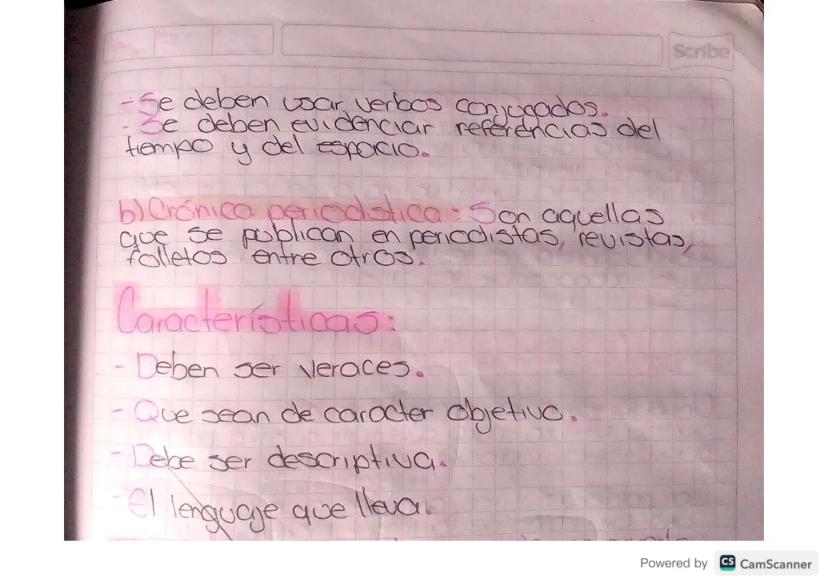 Scribe
- Se deben usar verbos conjugados.
- Se deben evidenciar referencias del
tiempo y del espacio.
b) Crónica periodistica: Son aquellas
que se publican en periodistas, revistas,
folletos entre otros.
Características:
- Deben ser veraces.
- Que sean de caracter objetivo.
- Debe ser descriptiva.
- El lenguaje que lleva.
Powered by CS CamScanner